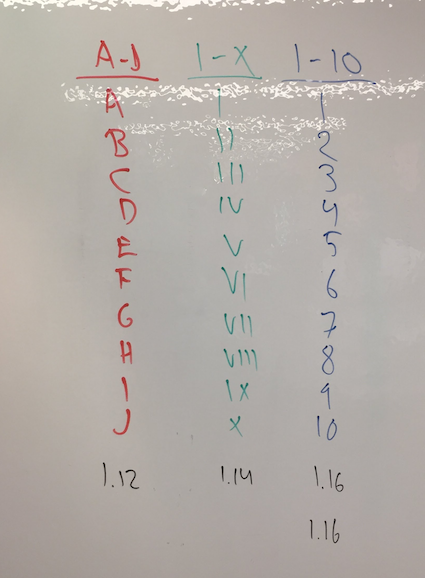 A-D I-X 1-10
A I 1
B II 2
C III 3
D IV 4
E V 5
F VI 6
G VII 7
H VIII 8
I IX 9
J X 10
1.12 1.14 1.16
1.16